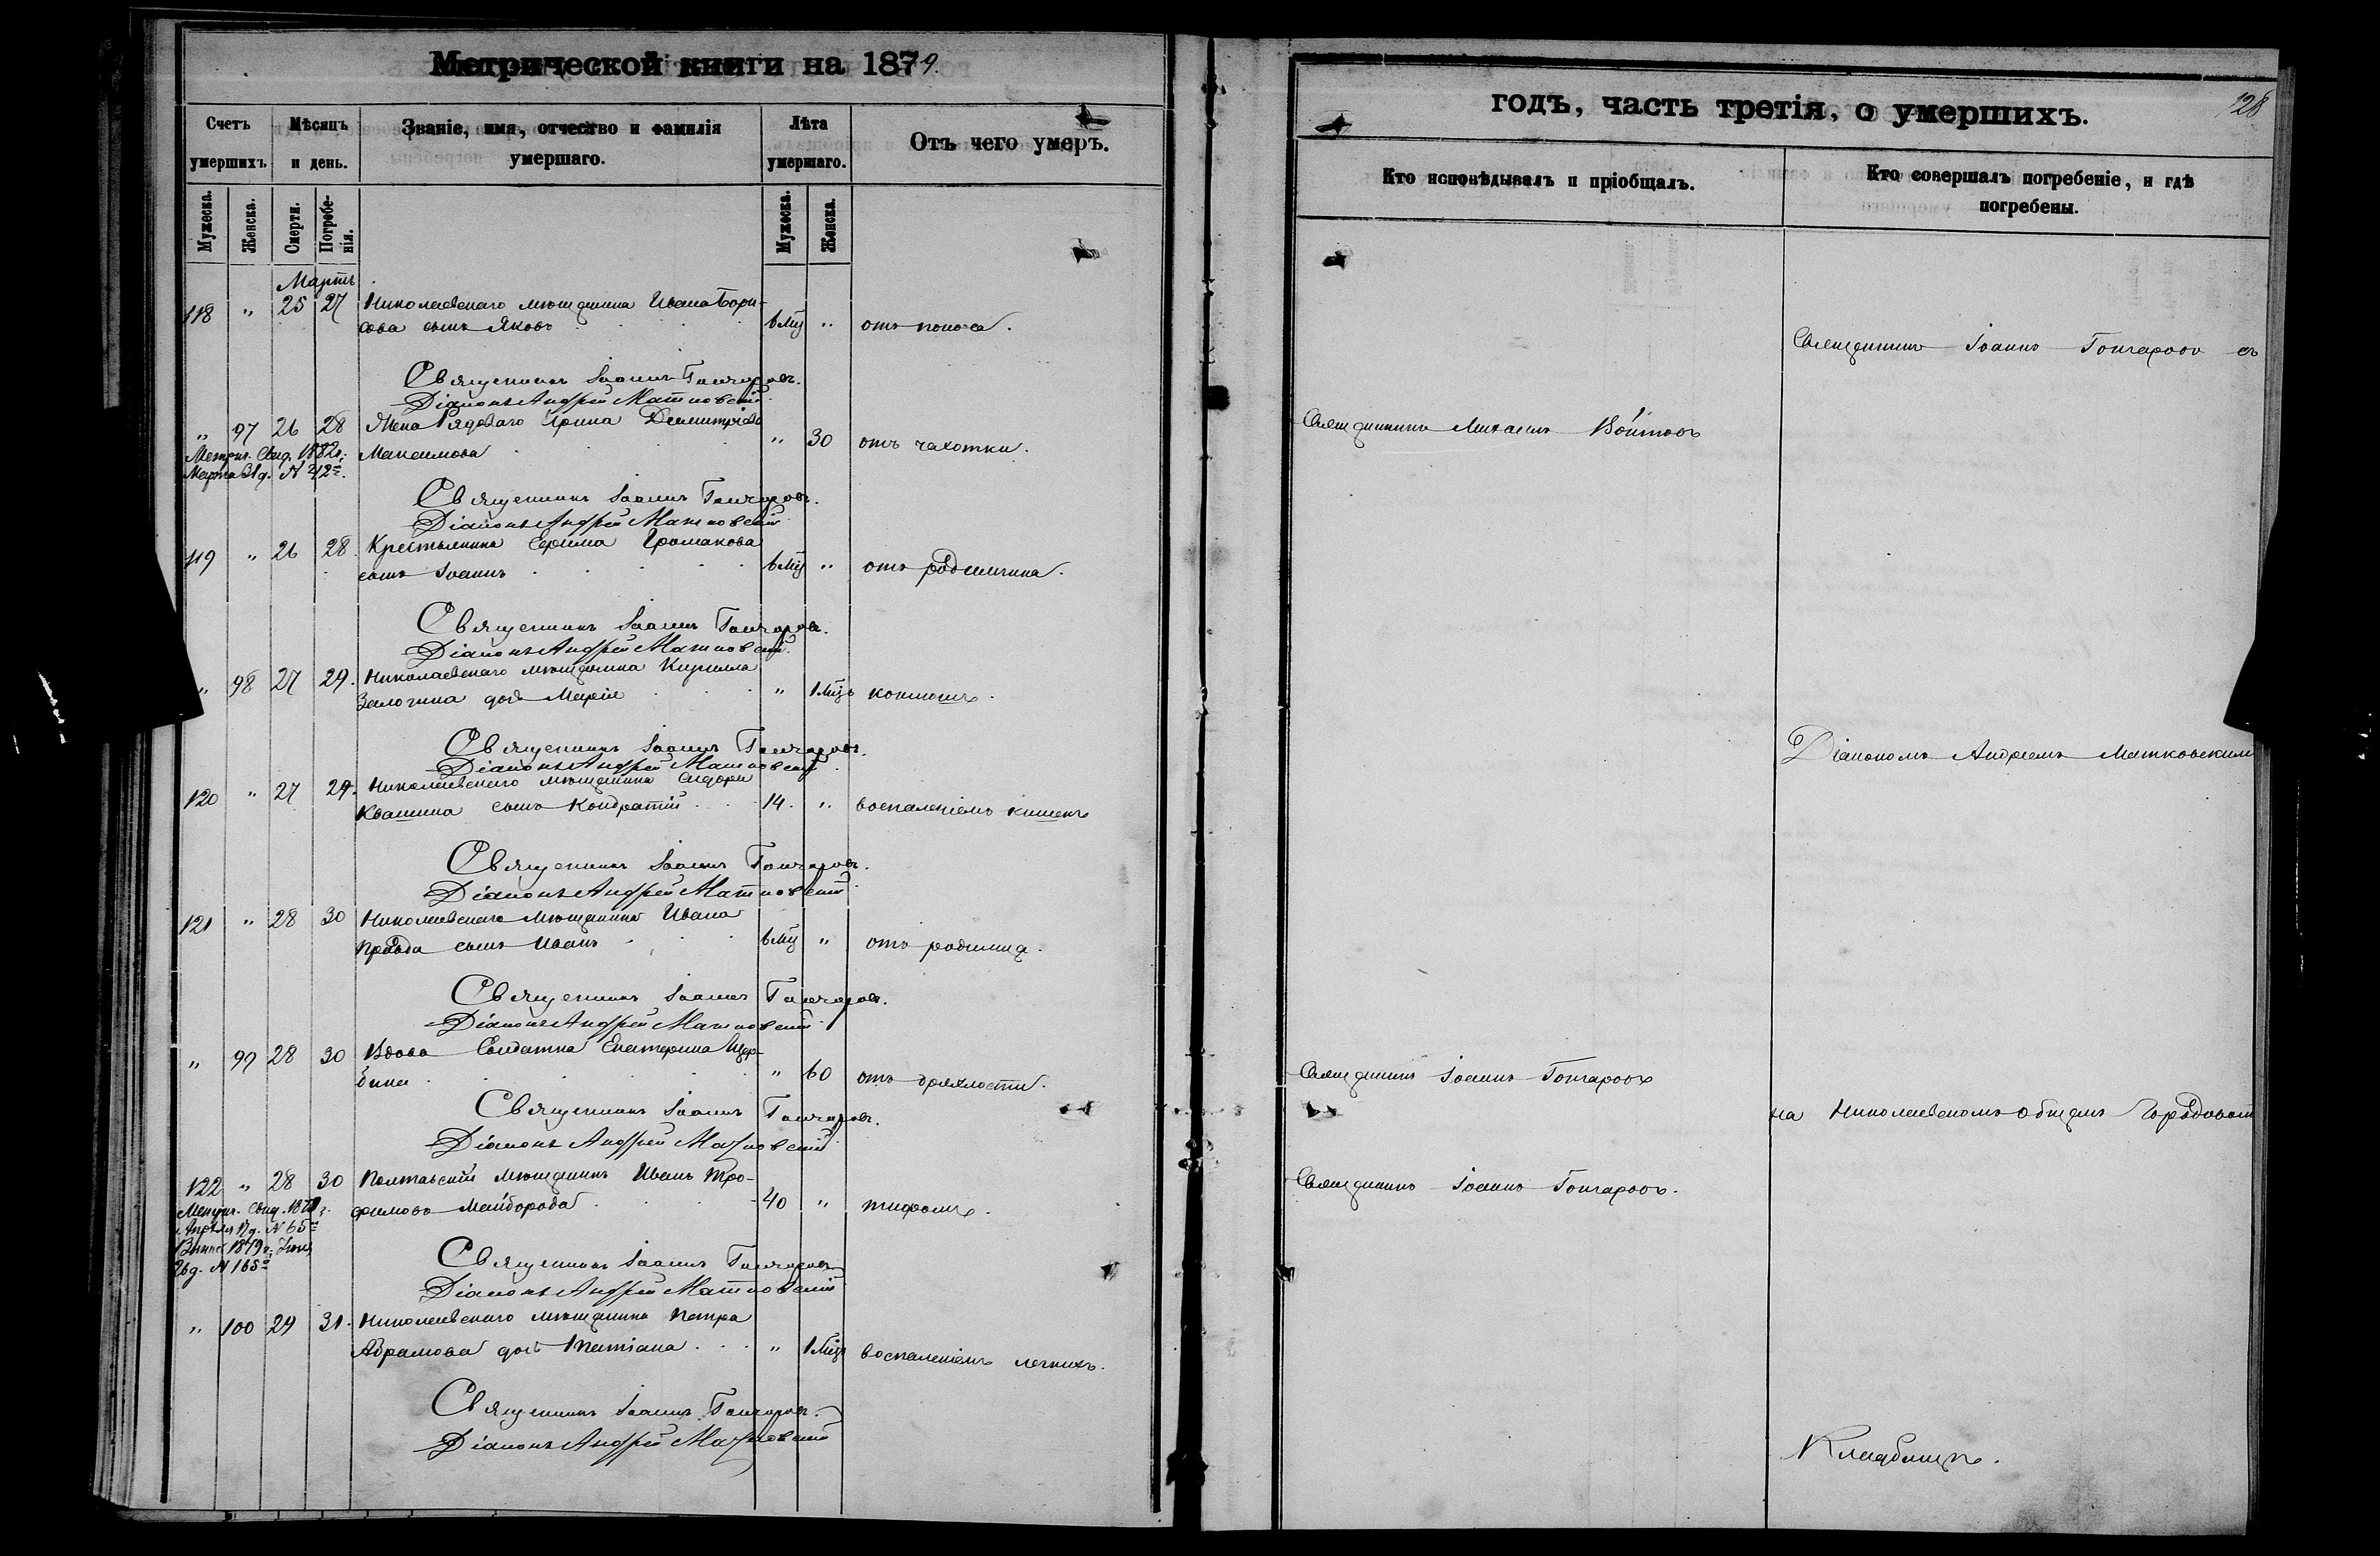 Метрической книги на 1879.
Счетъ умершихъ.
Мѣсяцъ и день.
Званіе, имя, отчество и фамилія умершаго.
Лѣта умершаго.
Отъ чего умеръ.
Мужеска.
Женска.
Смерти.
Погребенія.
Мужеска.
Женска.
Мартъ
118 " 25 27 Николаевскаго мѣщанина Ивана Бори-
сова сынъ Яковъ 6 мц " отъ поноса.
Священникъ Іоаннъ Гончаровъ.
Діаконъ Андрей Матковскій.
" 97 26 28 Жена Рядоваго Ирина Димитріева
Максимова " 30 отъ чахотки.
Метрич. Свид. 1882 г.
Марта 31 д. № 212
Священникъ Іоаннъ Гончаровъ.
Діаконъ Андрей Матковскій
119 " 26 28 Крестьянина Ефима Громакова
сынъ Іоаннъ 6 мц " отъ родимчика.
Священникъ Іоаннъ Гончаровъ.
Діаконъ Андрей Матковскій.
" 98 27 29. Николаевскаго мѣщанина Кирилла
дочь Марія " 1 мцъ
Священникъ Іоаннъ Гончаровъ.
Діаконъ Андрей Матковскій
120 " 27 29. Николаевскаго мѣщанина Сидора
Квашина сынъ Кондратій 14. " воспаленіемъ кишекъ
Священникъ Іоаннъ Гончаровъ.
Діаконъ Андрей Матковскій
121 " 28 30 Николаевскаго мѣщанина Ивана
сынъ Иванъ 6 мц " отъ
Священникъ Іоаннъ Гончаровъ.
Діаконъ Андрей Матковскій
" 99 28 30 Вдова Солдатка Екатерина Щер-
бина " 60 отъ дряхлости.
Священникъ Іоаннъ Гончаровъ.
Діаконъ Андрей Матковскій
122 " 28 30 Полтавскій мѣщанинъ Иванъ Тро-
фимовъ Майборода 40 " тифомъ.
Метрич. Свид. 1879 г.
Апрѣля 17 д. № 65
1879 г. Іюня
26 д. № 165
Священникъ Іоаннъ Гончаровъ
Діаконъ Андрей Матковскій
" 100 29 31. Николаевскаго мѣщанина Петра
Абрамова дочь Татіана " 1 мцъ воспаленіемъ легкихъ.
Священникъ Іоаннъ Гончаровъ.
Діаконъ Андрей Матковскій
годъ, часть третія, о умершихъ.
128
Кто исповѣдывалъ и пріобщалъ.
Кто совершалъ погребеніе, и гдѣ погребены.
Священникъ Іоаннъ Гончаровъ съ
Священникъ Михаилъ Войтовъ
Діакономъ Андреемъ Матковским
Священникъ Іоаннъ Гончаровъ
на Николаевскомъ общемъ Городовом
Священникъ Іоаннъ Гончаровъ.
Кладбищѣ.